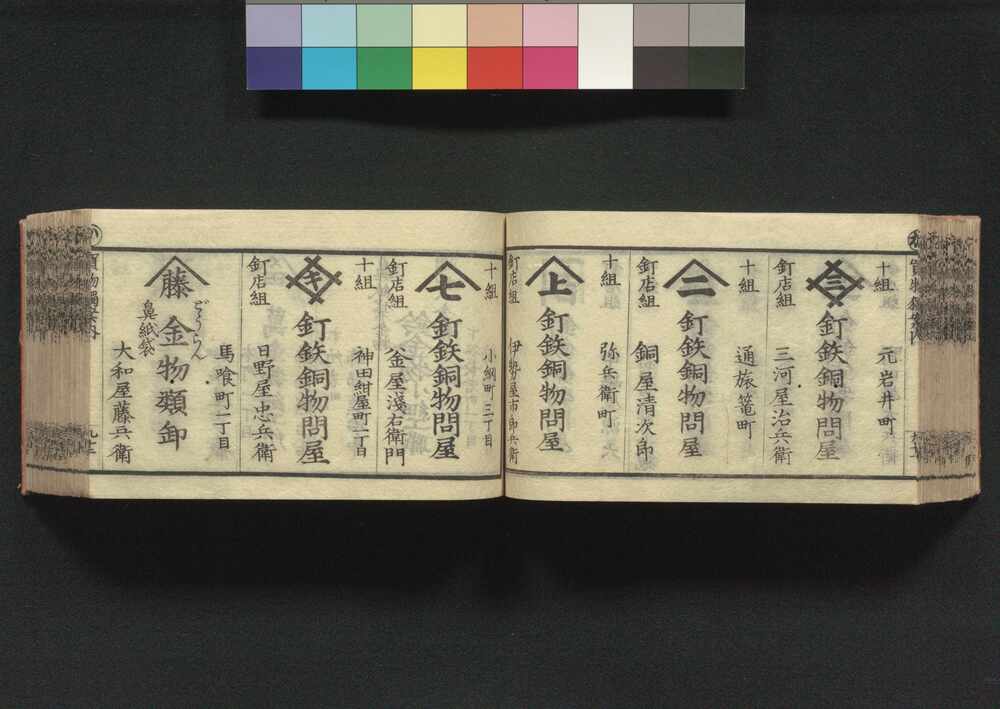 十組
元岩井町
三
釘鉄銅物問屋
釘店組
三河屋治兵衛
十組
通旅篭町
二
釘鉄銅物問屋
釘店組
銅屋清次郎
十組
弥兵衛町
上
釘鉄銅物問屋
釘店組
伊勢屋市郎兵衛
十組
小網町三丁目
七
釘鉄銅物問屋
釘店組
釜屋浅右衛門
十組
神田紺屋町一丁目
キ
釘鉄銅物問屋
釘店組
日野屋忠兵衛
馬喰町一丁目
藤
どうらん
金物類卸
鼻紙袋
大和屋藤兵衛